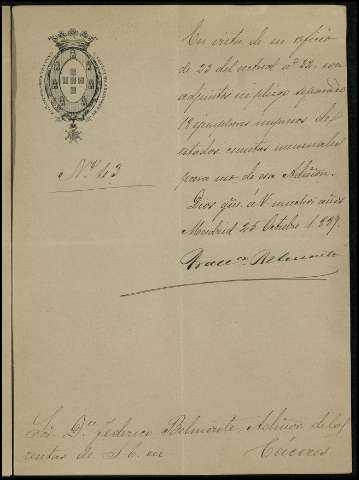 En vista de su oficio
de 23 del actual nº 22, son
adjuntos en pliego separado
18 ejemplares impresos de
estados cuentas mensuales
para uso de esa Admon.
Dios gūe. á V. muchos años
Madrid 25 Octubre 1.889.
Belmonte
Nº 43
Sor. Dn. Federico Belmonte, Admor de las
rentas de S. E. en Cáceres